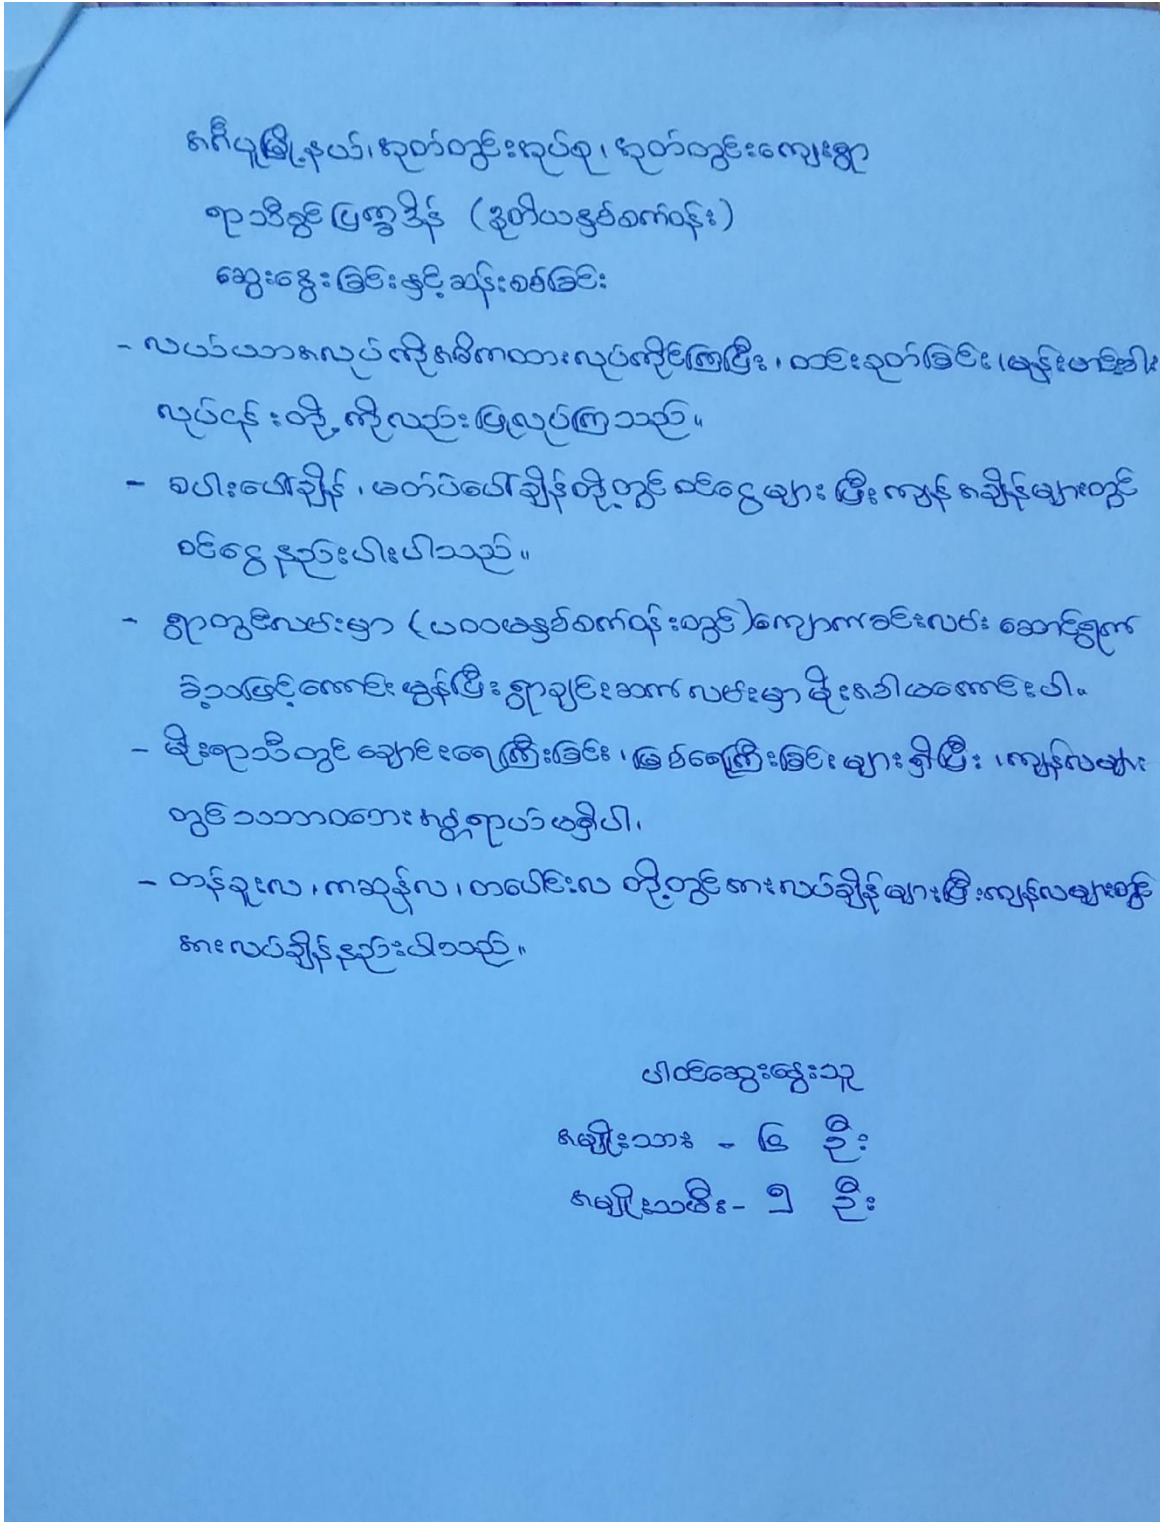 အင်္ဂပူမြို့နယ်၊အုတ်တွင်းအုပ်စု၊အုတ်တွင်းကျေးရွာ
ရာသီခွင်ပြက္ခဒိန် (ဒုတိယနှစ်စက်ဝန်း)
ဆွေးနွေးခြင်းနှင့်ဆန်းစစ်ခြင်း
- လယ်ယာအလုပ်ကိုအဓိကထားလုပ်ကိုင်ကြပြီး၊ထင်းခုတ်ခြင်း၊မျှန်းဖာင်
လုပ်ငန်းတို့ကိုလည်းပြုလုပ်ကြသည်။
- စပါးပေါ်ချိန်၊မတ်ပဲပေါ်ချိန်တို့တွင်ဝင်ငွေများပြီးကျန်အချိန်များတွင်
ဝင်ငွေနည်းပါးပါသည်။
- ရွာတွင်းလမ်းမှာ (ပထမနှစ်စက်ဝန်းတွင်)ကျောက်ခင်းလမ်းဆောင်ရွက်
ခဲ့သဖြင့်ကောင်းမွန်ပြီးရွာချင်းဆက်လမ်းမှာမိုးအခါမကောင်းပါ။
- မိုးရာသီတွင်ချောင်းရေကြီးခြင်း၊မြစ်ရေကြီးခြင်းများရှိပြီး၊ကျန်လများ
တွင်သဘာဝဘေးအန္တရာယ်မရှိပါ၊
- တန်ခူးလ၊ကဆုန်လ၊တပေါင်းလတို့တွင်အားလပ်ချိန်များပြီးကျန်လများတွင်
အားလပ်ချိန်နည်းပါသည်။
ပါဝင်ဆွေးနွေးသူ
အမျိုးသား - ၆ ဦး
အမျိုးသမီး - ၅ ဦး